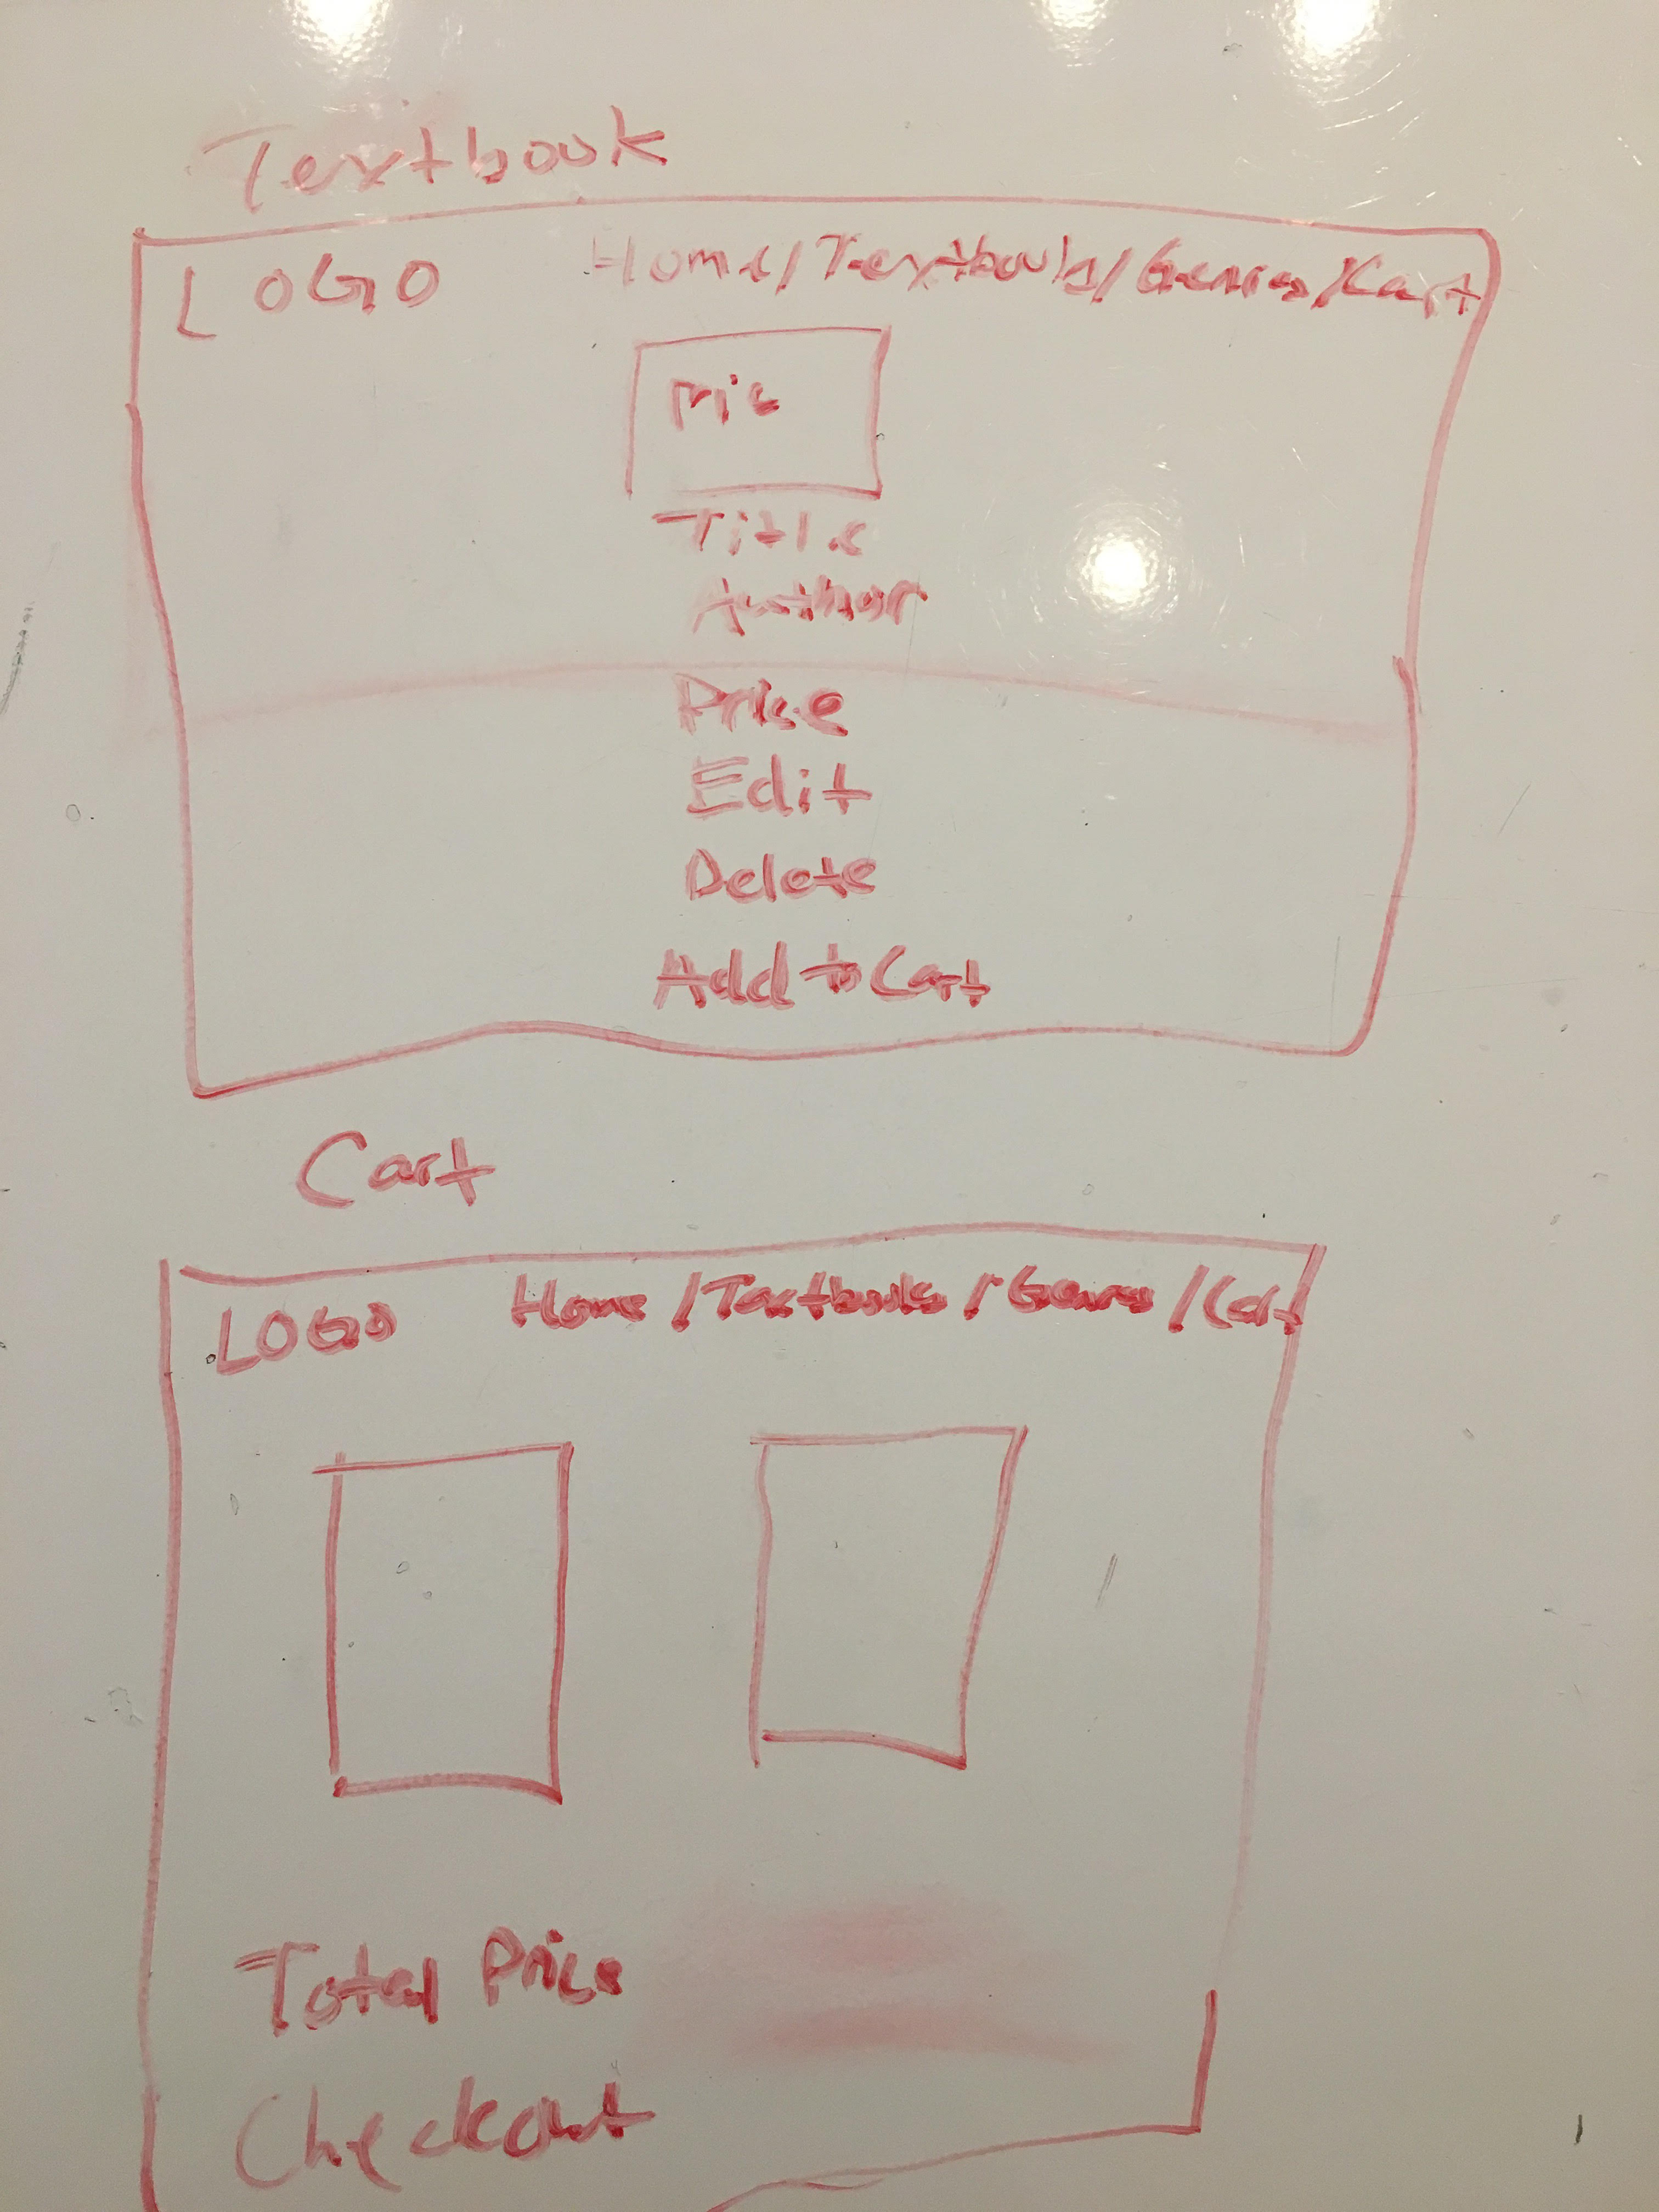 Textbook
LOGO Home/Textbooks/Genres/Cart
Pic
Title
Author
Price
Edit
Delete
Add to Cart
Cart
LOGO Home/Textbooks/Genres/Cart
Total Price
Checkout